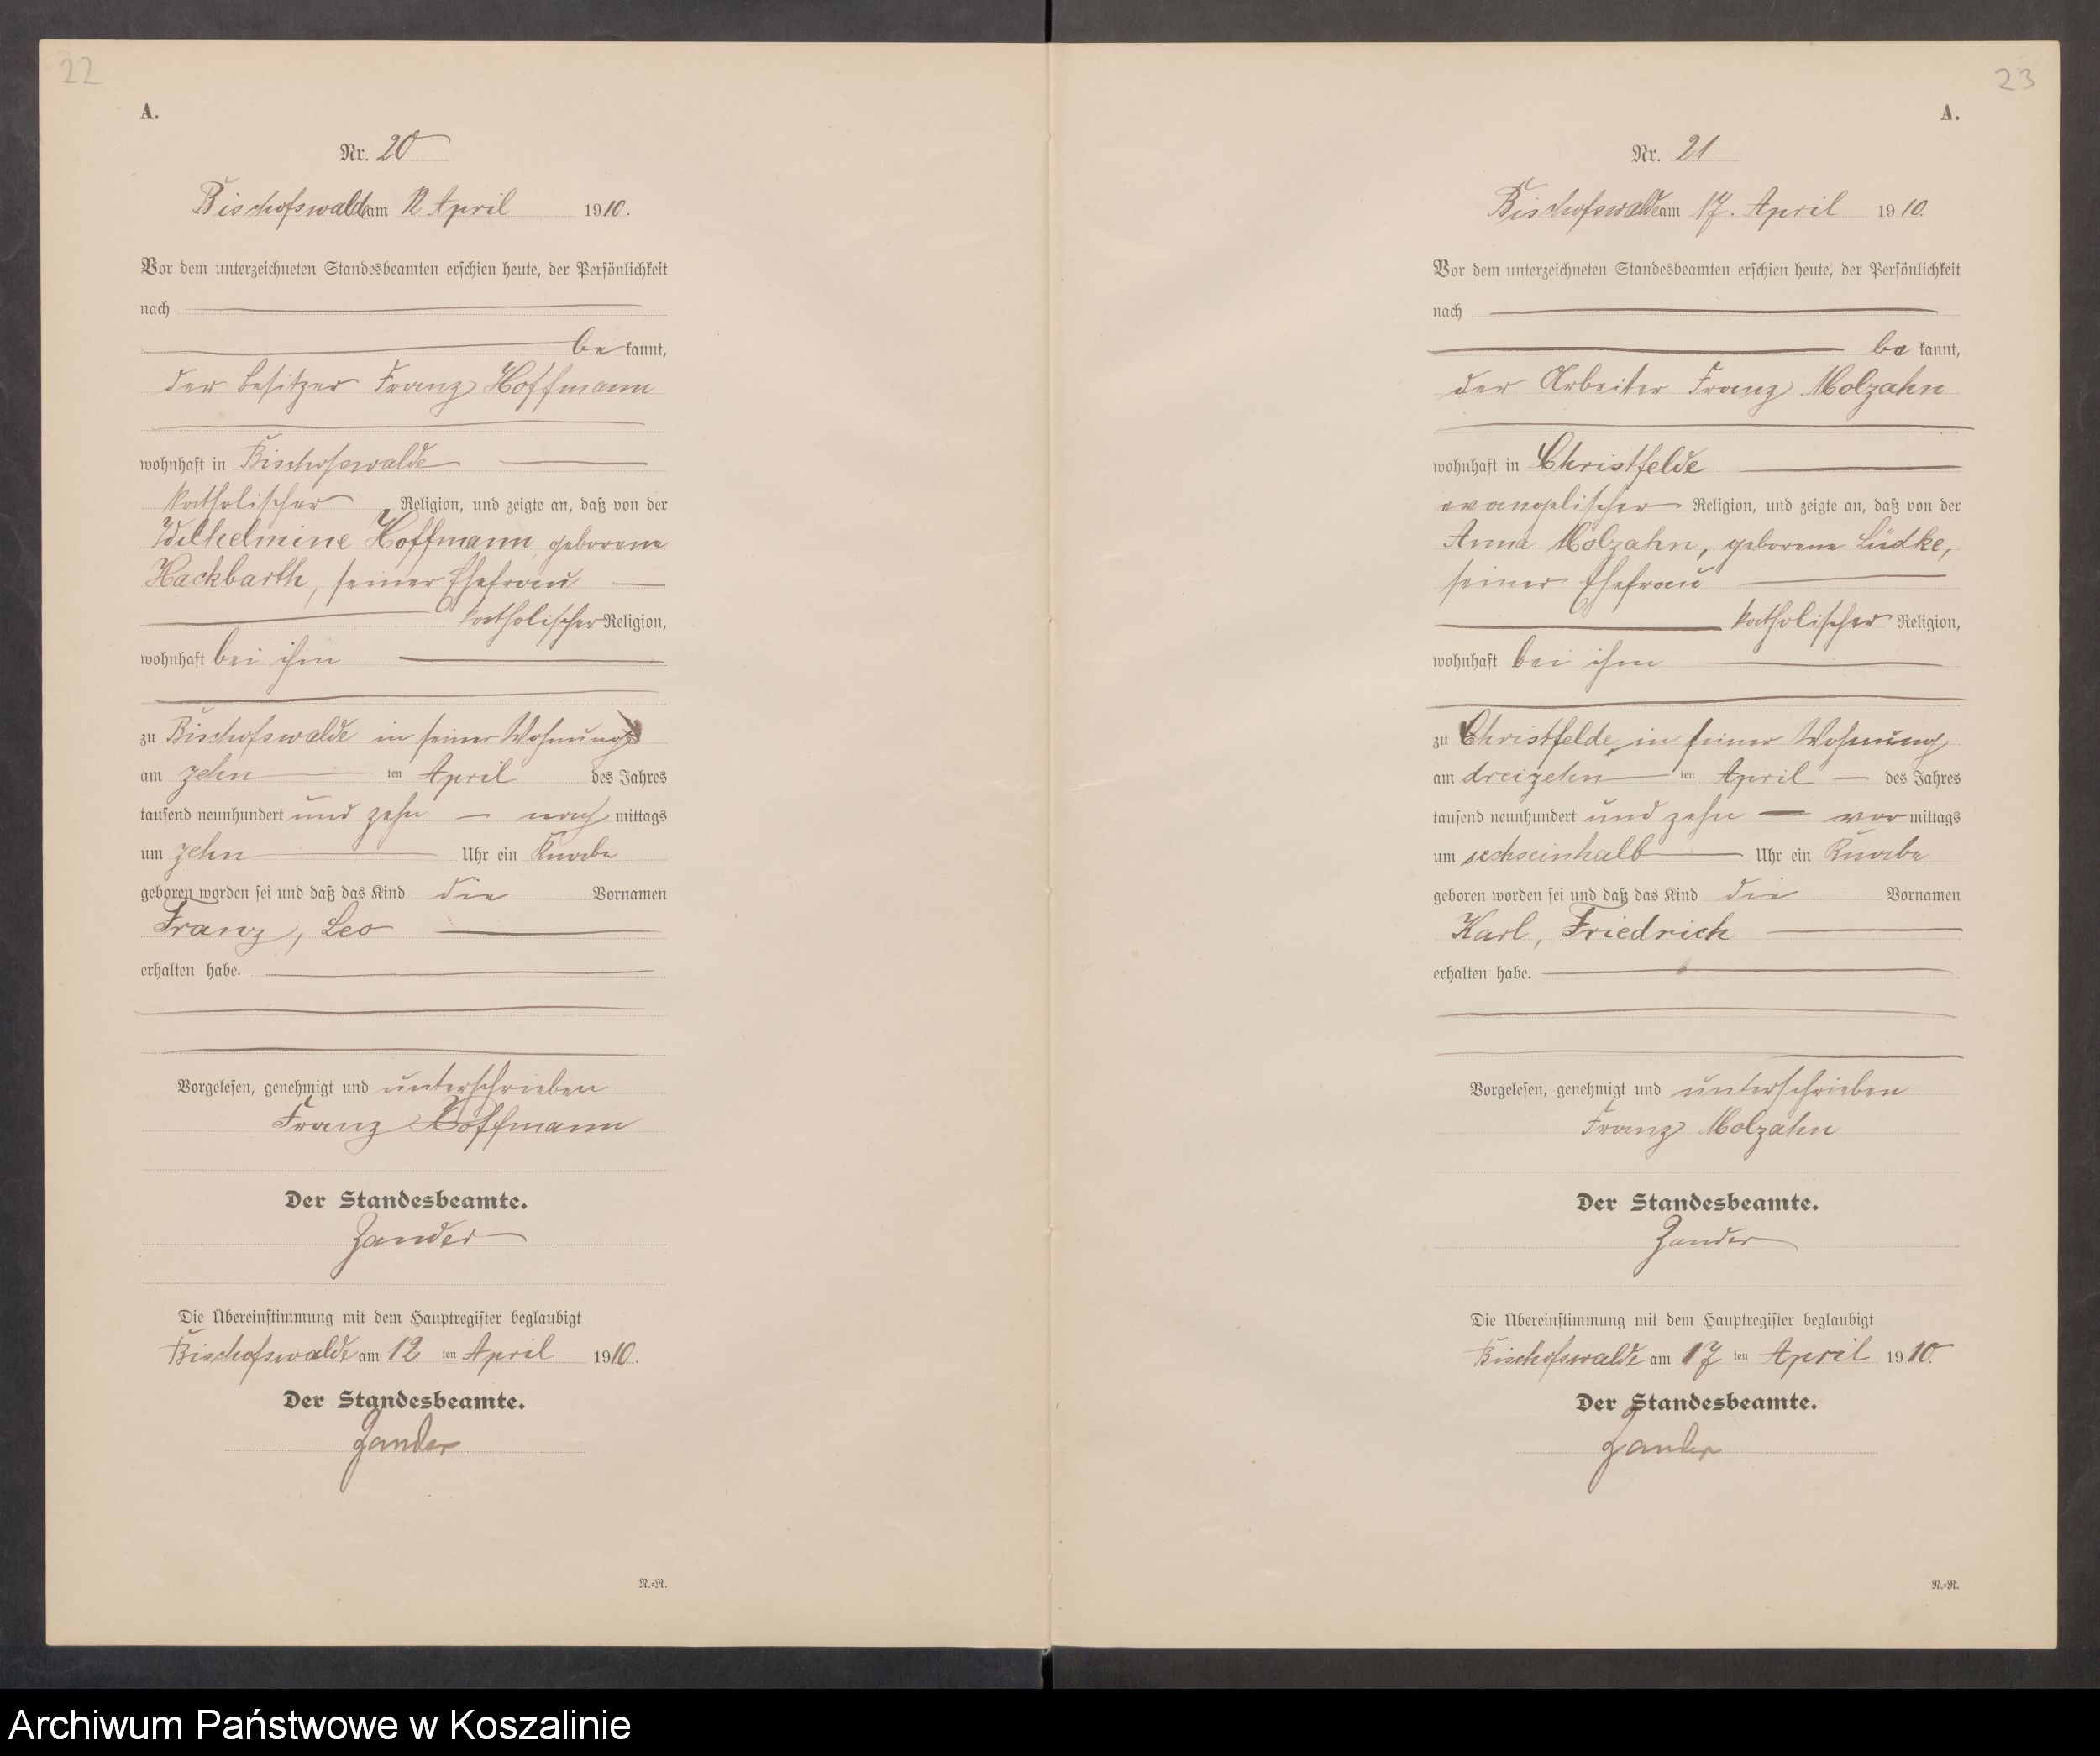 22
A.
Nr. 20
Bischofswalde am 12 April 1910.
Vor dem unterzeichneten Standesbeamten erschien heute, der Persönlichkeit
nach
be kannt,
der Besitzer Franz Hoffmann
wohnhaft in Bischofswalde
katholischer Religion, und zeigte an, daß von der
Wilhelmine Hoffmann geborene
Hackbarth, seiner Ehefrau
katholischer Religion,
wohnhaft bei ihm
zu Bischofswalde in seiner Wohnung
am zehn ten April des Jahres
tausend neunhundert und zehn nach mittags
um zehn Uhr ein Knabe
geboren worden sei und daß das Kind die Vornamen
Franz, Leo
erhalten habe.
Vorgelesen, genehmigt und unterschrieben
Franz Hoffmann
Der Standesbeamte.
Zander
Die Übereinstimmung mit dem Hauptregister beglaubigt
Bischofswalde am 12 ten April 1910.
Der Standesbeamte.
Zander
N.=R.
23
A.
Nr. 21
Bischofswalde am 17. April 1910.
Vor dem unterzeichneten Standesbeamten erschien heute, der Persönlichkeit
nach
be kannt,
der Arbeiter Franz Molzahn
wohnhaft in Christfelde
evangelischer Religion, und zeigte an, daß von der
Anna Molzahn, geborene Lüdke,
seiner Ehefrau
katholischer Religion,
wohnhaft bei ihm
zu Christfelde, in seiner Wohnung
am dreizehn ten April des Jahres
tausend neunhundert und zehn vor mittags
um sechseinhalb Uhr ein Knabe
geboren worden sei und daß das Kind die Vornamen
Karl, Friedrich
erhalten habe.
Vorgelesen, genehmigt und unterschrieben
Franz Molzahn
Der Standesbeamte.
Zander
Die Übereinstimmung mit dem Hauptregister beglaubigt
Bischofswalde am 17 ten April 1910.
Der Standesbeamte.
Zander
N.=R.
Archiwum Państwowe w Koszalinie